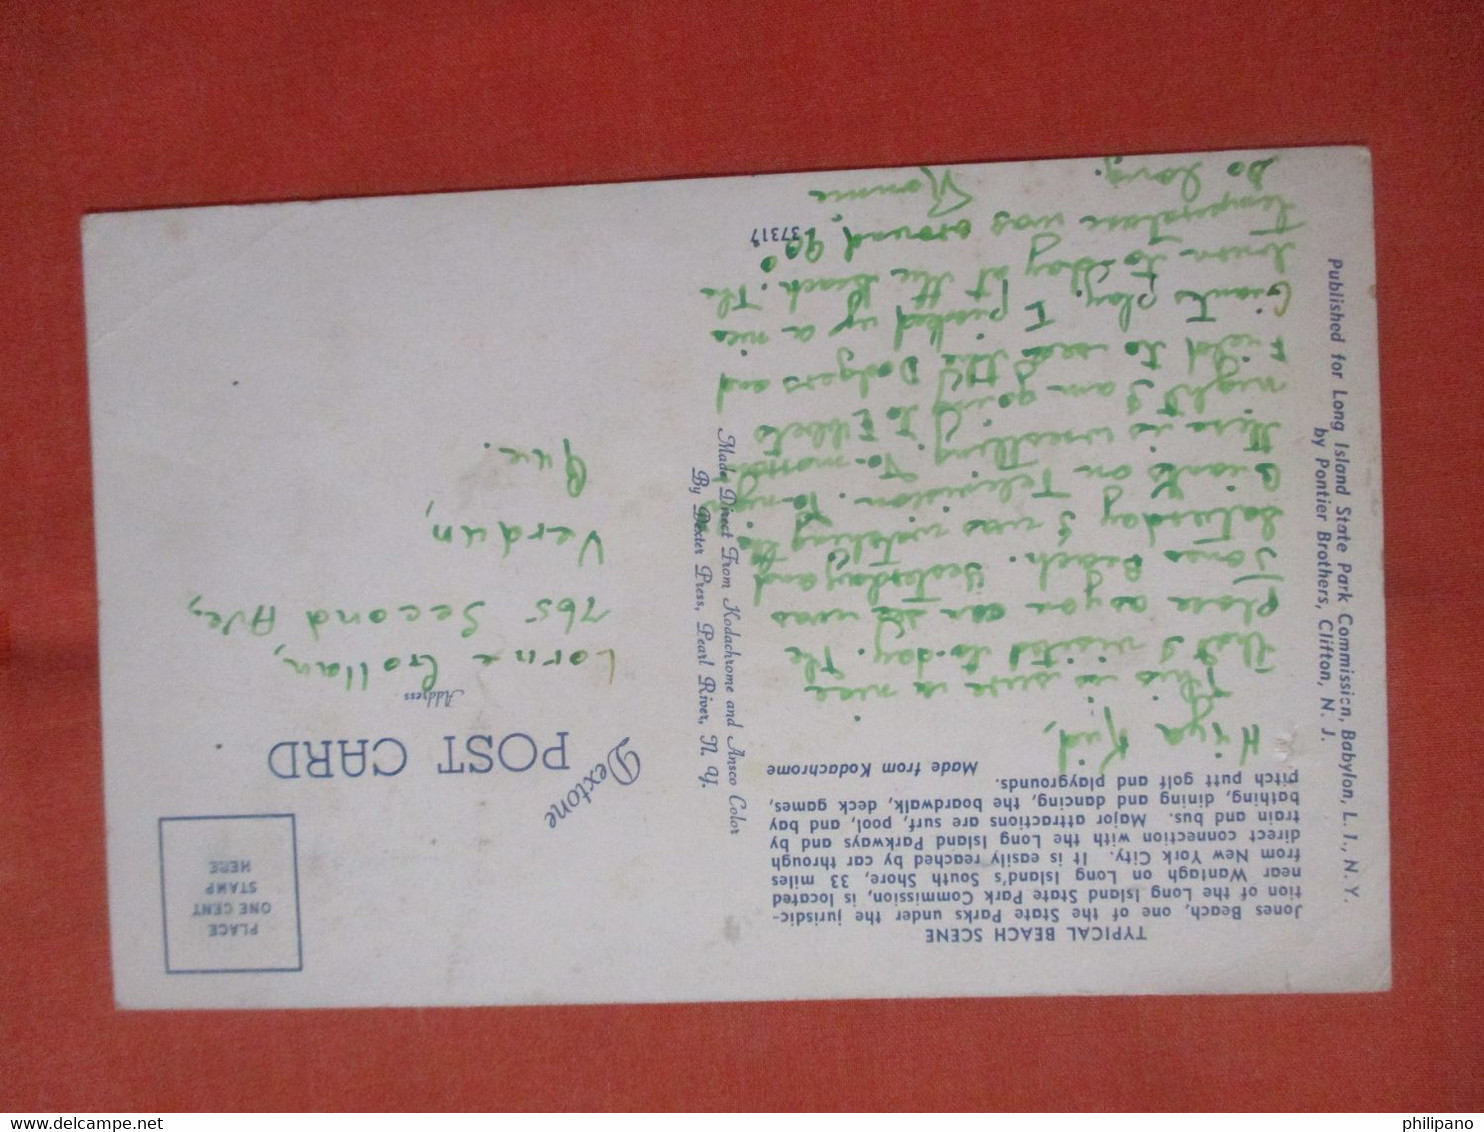 TYPICAL BEACH SCENE
Jones Beach, one of the State Parks under the jurisdic-
tion of the Long Island State Park Commission, is located
near Wantagh on Long Island's South Shore, 33 miles
from New York City. It is easily reached by car through
direct connection with the Long Island Parkways and by
train and bus. Major attractions are surf, pool, and bay
bathing, dining and dancing, the boardwalk, deck games,
pitch putt golf and playgrounds.
Made from Kodachrome
Hiya Kid,
This is sure a nice
that I visited to-day. The
place as you can see was
Jones Beach. Yesterday and
Saturday I was watching the
Giants on Television. To-night
there is wrestling. To-morrow
night I am going to Ebbets
Field to see the Dodgers and
Giants play. I picked up a nice
to-day at the Beach. The
temperature was around 90°
So Long.
Ronnie
37319
Published for Long Island State Park Commission, Babylon, L. I., N. Y.
by Pontier Brothers, Clifton, N. J.
Made Direct From Kodachrome and Ansco Color
By Dexter Press, Pearl River, N. Y.
Dextone
POST CARD
Address
PLACE
ONE CENT
STAMP
HERE
Lorne Gollan,
765 Second Ave,
Verdun,
Que.
philipano